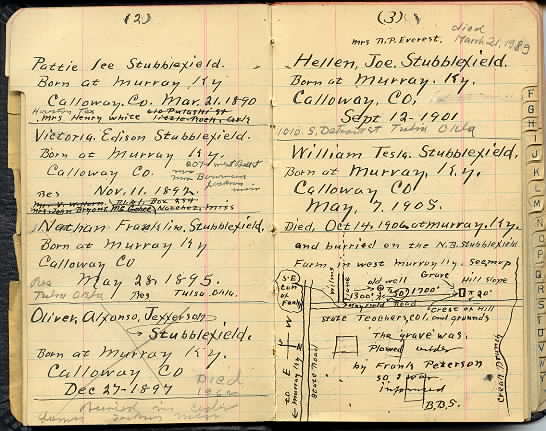 (2)
Pattie Lee Stubblefield.
Born at Murray Ky
Calloway. Co. Mar. 21. 1890
Houston Tex
Mrs Henry White Little Rock, Ark
Victoria. Edison Stubblefield.
Born at Murray Ky.
Calloway Co.
Nov. 11. 1892.
Res
Natchez, Miss
Nathan Franklin. Stubblefield.
Born at Murray Ky
Calloway Co
Res May 28, 1895.
Tulsa Okla Res Tulsa. Okla.
Oliver, Alfonso, Jefferson
Stubblefield.
Born at Murray Ky
Calloway Co Died
Dec-27-1897
(3)
died
March 21, 1989
Mrs R.P. Everest.
Hellen, Joe, Stubblefield.
Born at Murray. Ky.
Calloway. Co.
Sept 12-1901
1010 S. Detroit St Tulsa Okla
William Tesla. Stubblefield.
Born at Murray, Ky.
Calloway Co
May, 7. 1905.
Died, Oct 14. 1906 at Murray. Ky.
and burried on the N.B. Stubblefield
Farm, in west Murray Ky. see map
S.E
Cor
of Farm
old well
Grave
Hill Slope
1300'
1700'
Road
Crest of Hill
State Teachers, Col. and grounds
State Road
to Murray Ky
E
W
The grave was.
Plowed under
by Frank Peterson
so I was
informed
B.B.S.
F
G
H
I
J
K
L
M
N
O
P
Q
R
S
T
U
V
W
Y